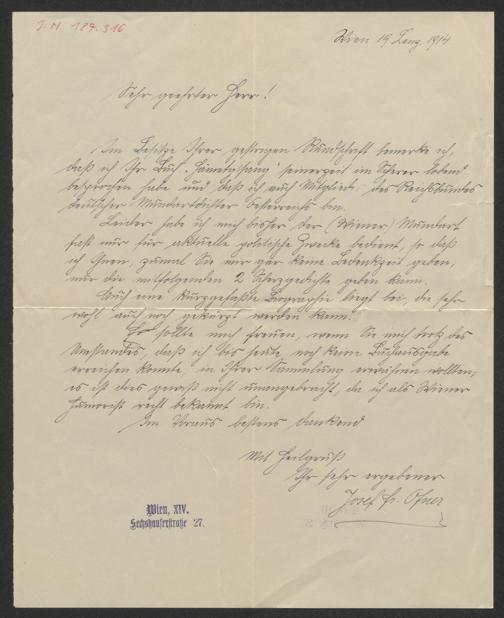 J.N. 187.316
Wien 19. Lenz. 1914
Sehr geehrter Herr!
Im Besitze Ihrer gestrigen Rundschrift bemerke ich,
daß ich Ihr Buch " seinerzeit im Scherer lobend
besprochen habe und daß ich auch Mitglied des Reichsbundes
deutscher Mundartdichter Österreichs bin.
Leider habe ich mich bisher der (Wiener) Mundart
fast nur für aktuelle politische Zwecke bedient, so daß
ich Ihnen, zumal Sie mir gar keine Bedenkzeit geben,
nur die mitfolgenden 2 Scherzgedichte geben kann.
Auch eine kurzgefaßte Biographie liegt bei, die sehr
wohl auch noch gekürzt werden kann.
Es sollte mich freuen, wenn Sie mich trotz des
Umstandes, daß ich bis heute noch keine Buchausgabe
erreichen konnte, in Ihrer Sammlung erwähnen wollten;
es ist dies gewiß nicht unangebracht, da ich als Wiener
Humorist recht bekannt bin.
Im Voraus bestens dankend
Mit Heilgruß
Ihr sehr ergebener
Josef Fr. Ofner
Wien, XIV.
Sechshauserstraße 27.